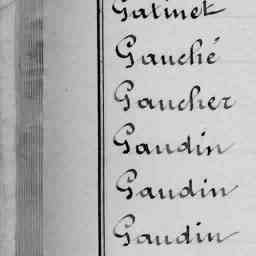 Gatinet
Gauché
Gaucher
Gaudin
Gaudin
Gaudin